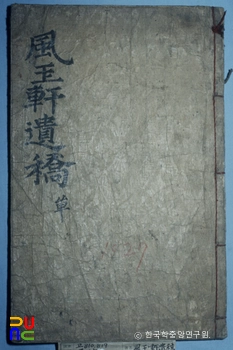 風玉軒遺稿
草
© 한국학중앙연구원